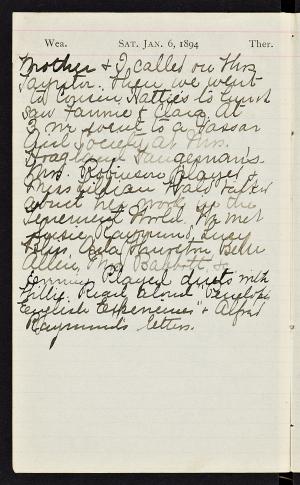 Wea. SAT. JAN. 6, 1894 Ther.
Mother & I called on Mrs.
Then we went
to Cousin Hattie's to lunch
Saw Fannie & Clara. At
3 we went to a Vassar
Society at Mrs.
Hoagland
Mrs. Robinson Played &
Miss Lillian Wald talked
about her work in the
Tenement World. We met
Raymond, Lucy
Ada Thurston, Belle
Allen, Babbott, &
Played duets with
Lillie. Read aloud "Penelope's
English Experiences" & Alfred
Raymond's letters.